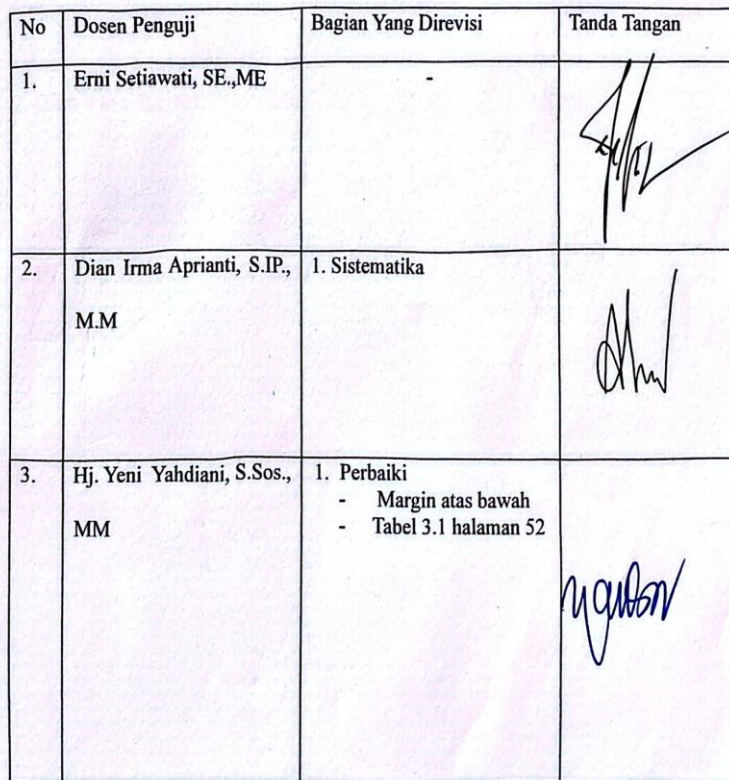 No Dosen Penguji Bagian Yang Direvisi Tanda Tangan
1. Erni Setiawati, SE.,ME -
2. Dian Irma Aprianti, S.IP., 1. Sistematika
M.M
3. Hj. Yeni Yahdiani, S.Sos., 1. Perbaiki
- Margin atas bawah
MM - Tabel 3.1 halaman 52